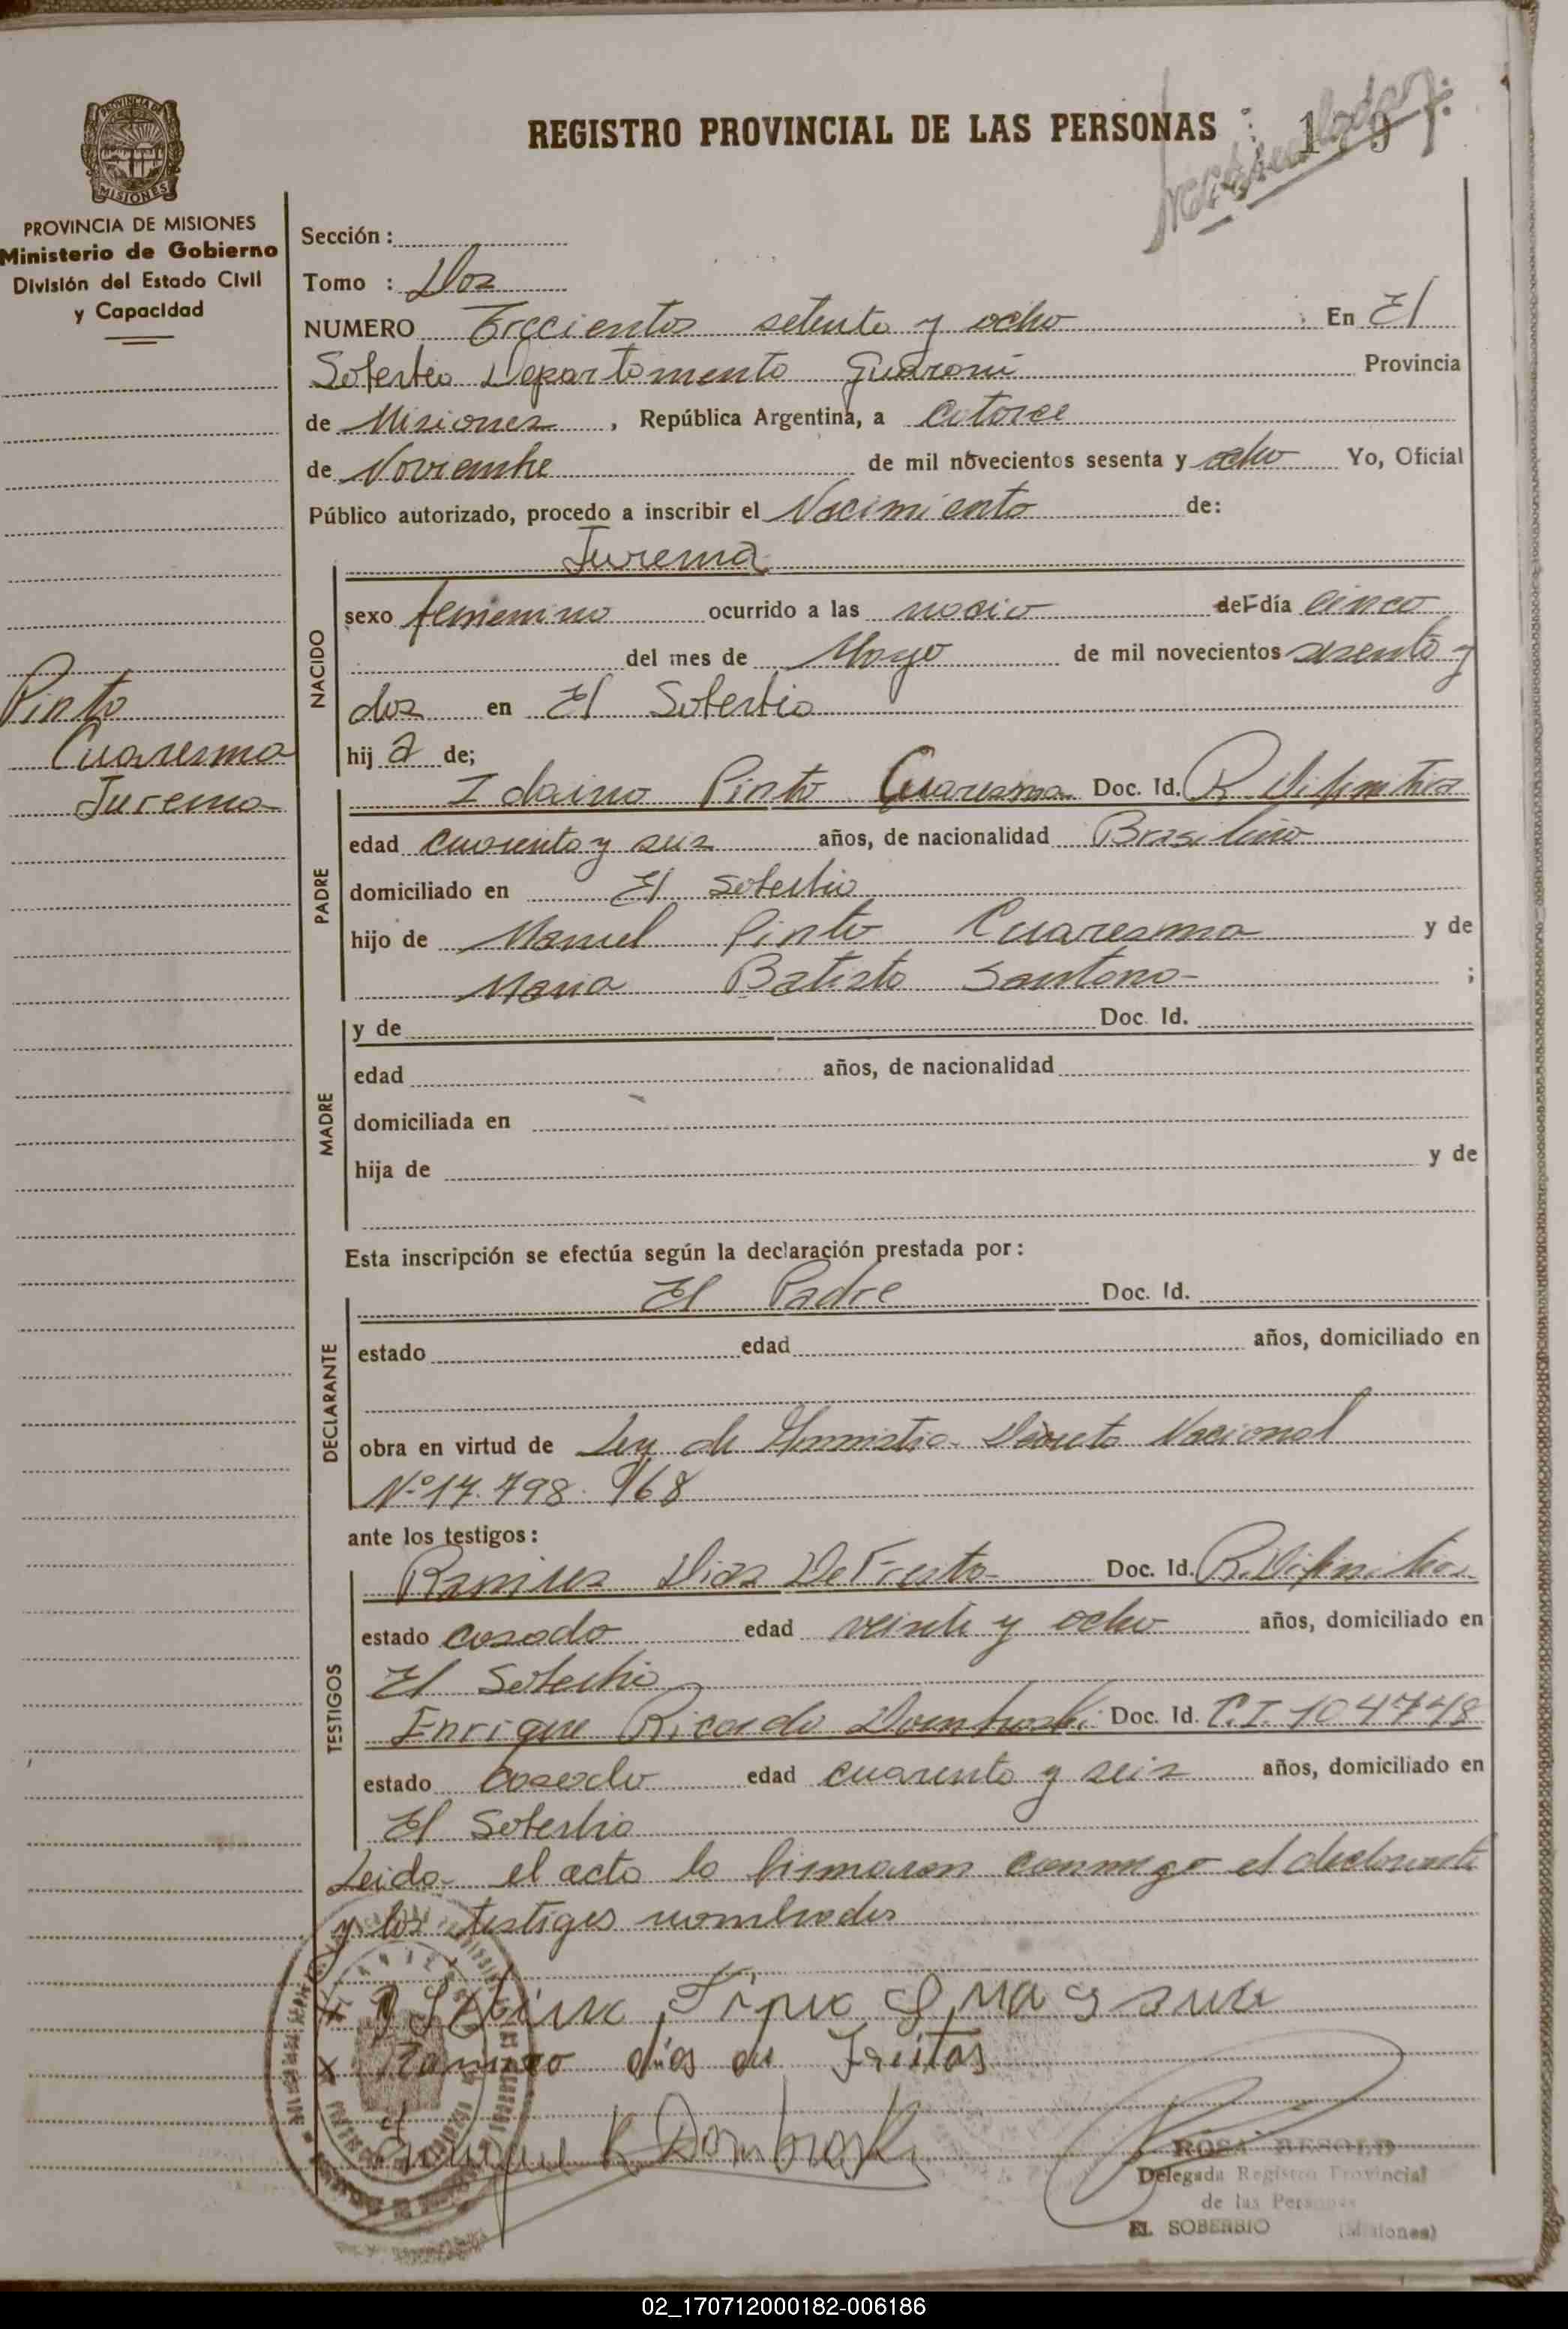 PROVINCIA DE MISIONES
MISIONES
PROVINCIA DE MISIONES
Ministerio de Gobierno
División del Estado Civil
y Capacidad
Pinto
Cuaresma
Jurema
REGISTRO PROVINCIAL DE LAS PERSONAS
Sección:
Tomo : Dos
NUMERO Trecientos setenta y ocho En El
Soberbio Departamento Guaraní Provincia
de Misiones, República Argentina, a Catorce
de Noviembre de mil novecientos sesenta y ocho Yo, Oficial
Público autorizado, procedo a inscribir el Nacimiento de:
Jurema
NACIDO
sexo femenino ocurrido a las del día cinco
del mes de Mayo de mil novecientos sesenta y
dos en El Soberbio
hija de;
PADRE
Idaino Pinto Cuaresma Doc. Id.
edad cuarenta y seis años, de nacionalidad Brasileño
domiciliado en El Soberbio
hijo de Manuel Pinto Cuaresma y de
Maria Batista Santana ;
MADRE
y de Doc. Id.
edad años, de nacionalidad
domiciliada en
hija de y de
Esta inscripción se efectúa según la declaración prestada por:
DECLARANTE
El Padre Doc. Id.
estado edad años, domiciliado en
obra en virtud de Ley de Amnistia Decreto Nacional
Nº 17.798 /68
ante los testigos:
TESTIGOS
Ramires Dias De Freita Doc. Id.
estado casado edad veinte y ocho años, domiciliado en
El Soberbio
Enrique Ricardo Dombroski Doc. Id. C.I. 104748
estado Casado edad cuarenta y seis años, domiciliado en
El Soberbio
Leida el acta la firmaron conmigo el declarante
y los testigos nombrados
Ramiro dias de Freitas
Enrique R Dombroski
ROSA BESOLD
Delegada Registro Provincial
de las Personas
EL SOBERBIO (Misiones)
02_170712000182-006186